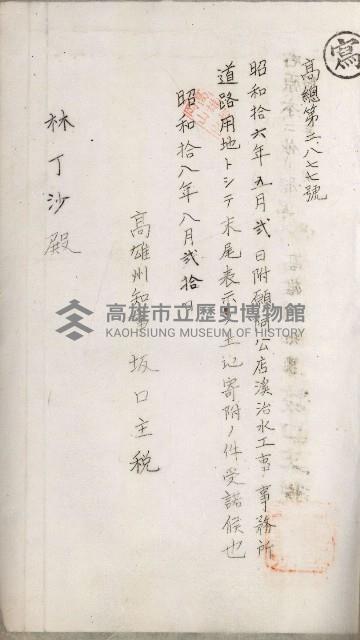 寫
高總第二八七七號
昭和拾六年九月貳日附願阿公店溪治水工事事務所
道路用地トシテ末尾表示土地寄附ノ件受諾候也
昭和拾八年八月貳拾日
高雄州知事坂口主税
林丁沙殿
高雄市立歷史博物館
KAOHSIUNG MUSEUM OF HISTORY